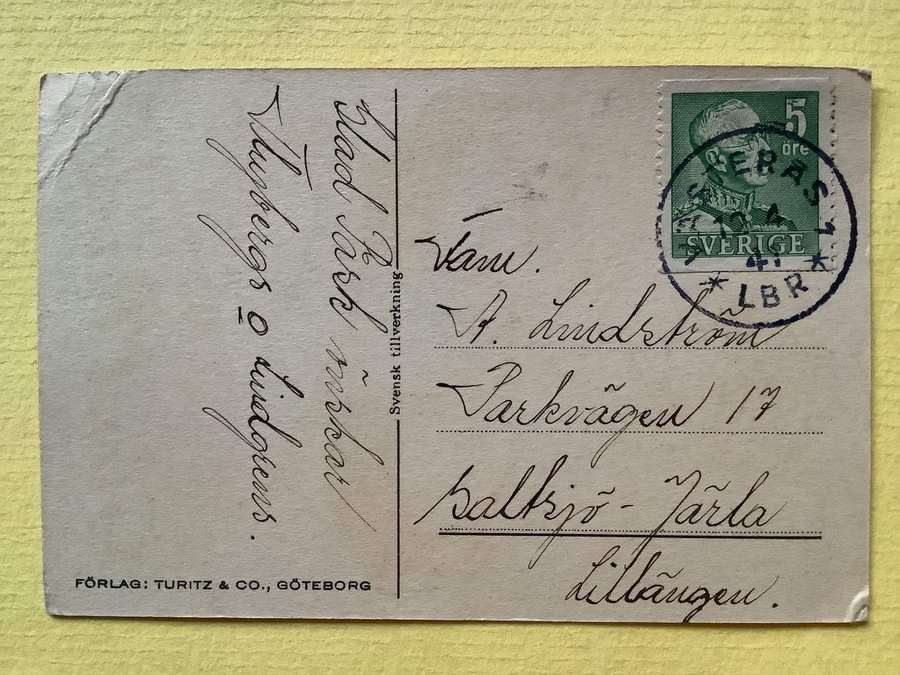 Glad Påsk önskar
Nybergs o Lindgrens.
FÖRLAG: TURITZ & CO., GÖTEBORG
Svensk tillverkning
5
öre
SVERIGE
VÄSTERÅS 1
10 4
41
* LBR *
Fam.
A. Lindström
Parkvägen 17
Saltsjö-Järla
Lillängen.